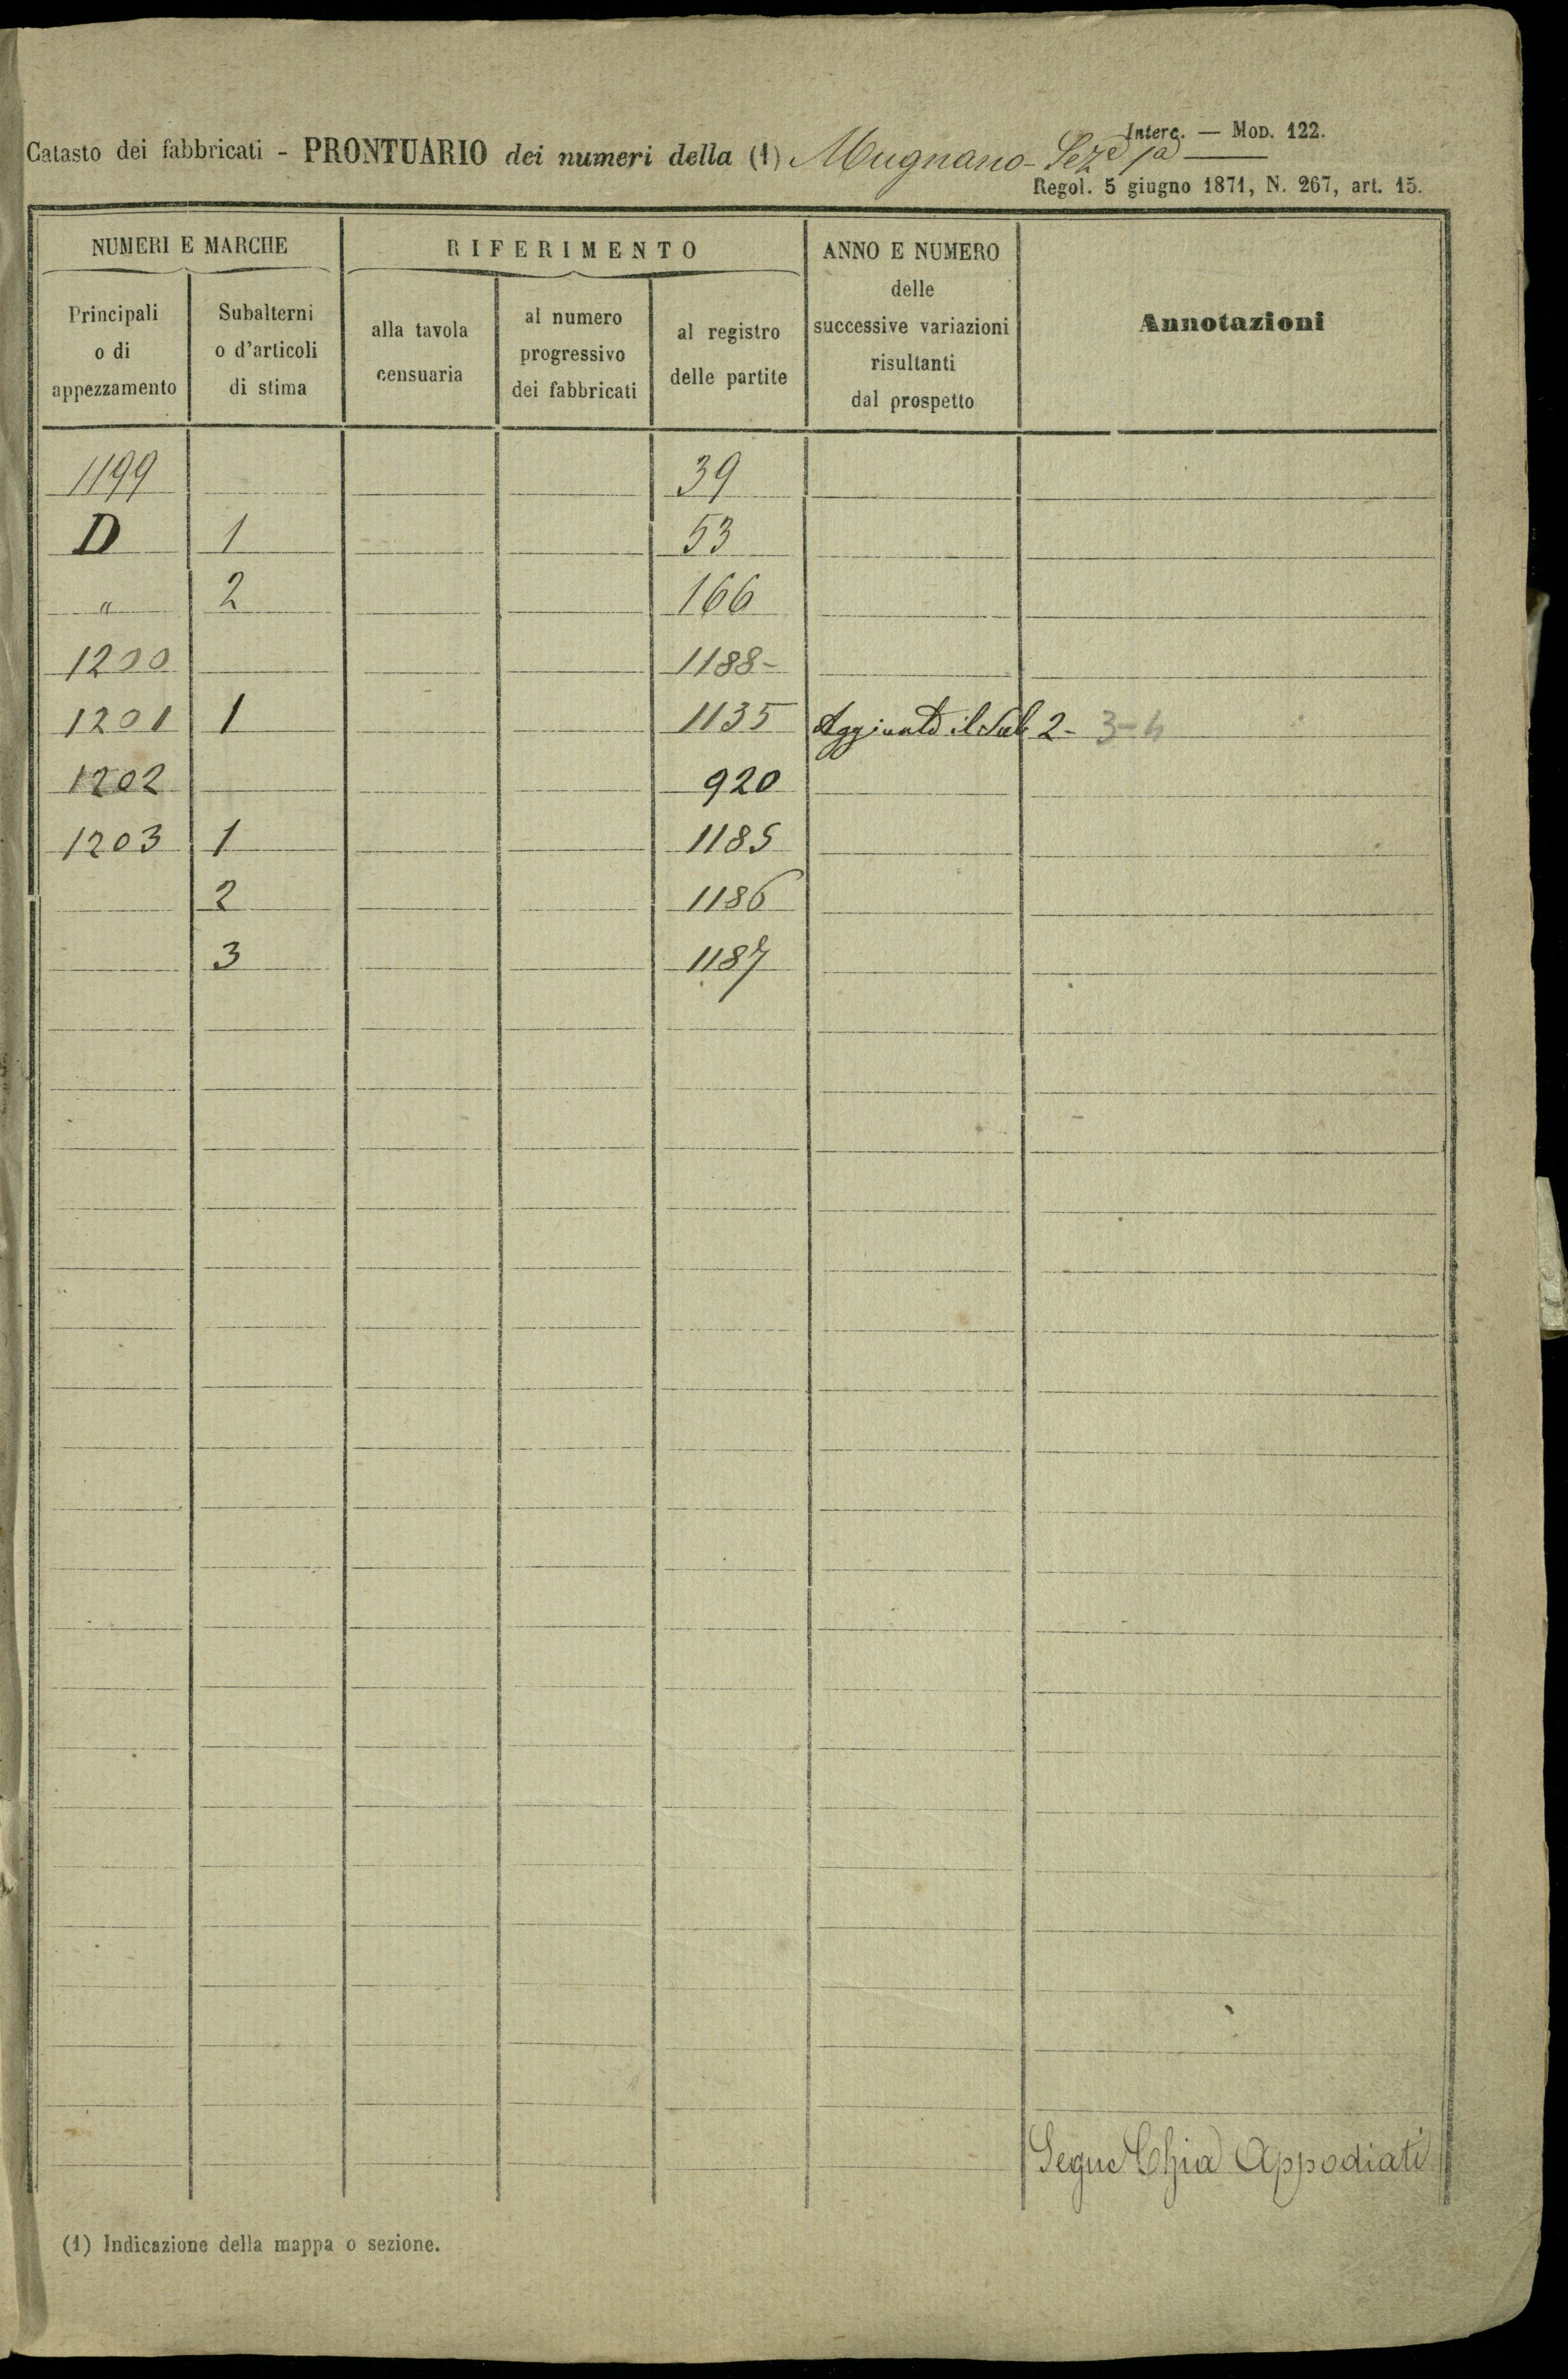 Interc. — Mod. 122.
Catasto dei fabbricati - PRONTUARIO dei numeri della (1) Mugnano - Sez.e 1a
Regol. 5 giugno 1871, N. 267, art. 15.
NUMERI E MARCHE
Principali
o di
appezzamento
Subalterni
o d'articoli
di stima
RIFERIMENTO
alla tavola
censuaria
al numero
progressivo
dei fabbricati
al registro
delle partite
ANNO E NUMERO
delle
successive variazioni
risultanti
dal prospetto
Annotazioni
1199 39
D 1 53
" 2 166
1200 1188-
1201 1 1135 Aggiunto il Sub 2- 3-4
1202 920
1203 1 1185
2 1186
3 1187
Segue Chia Appodiati
(1) Indicazione della mappa o sezione.